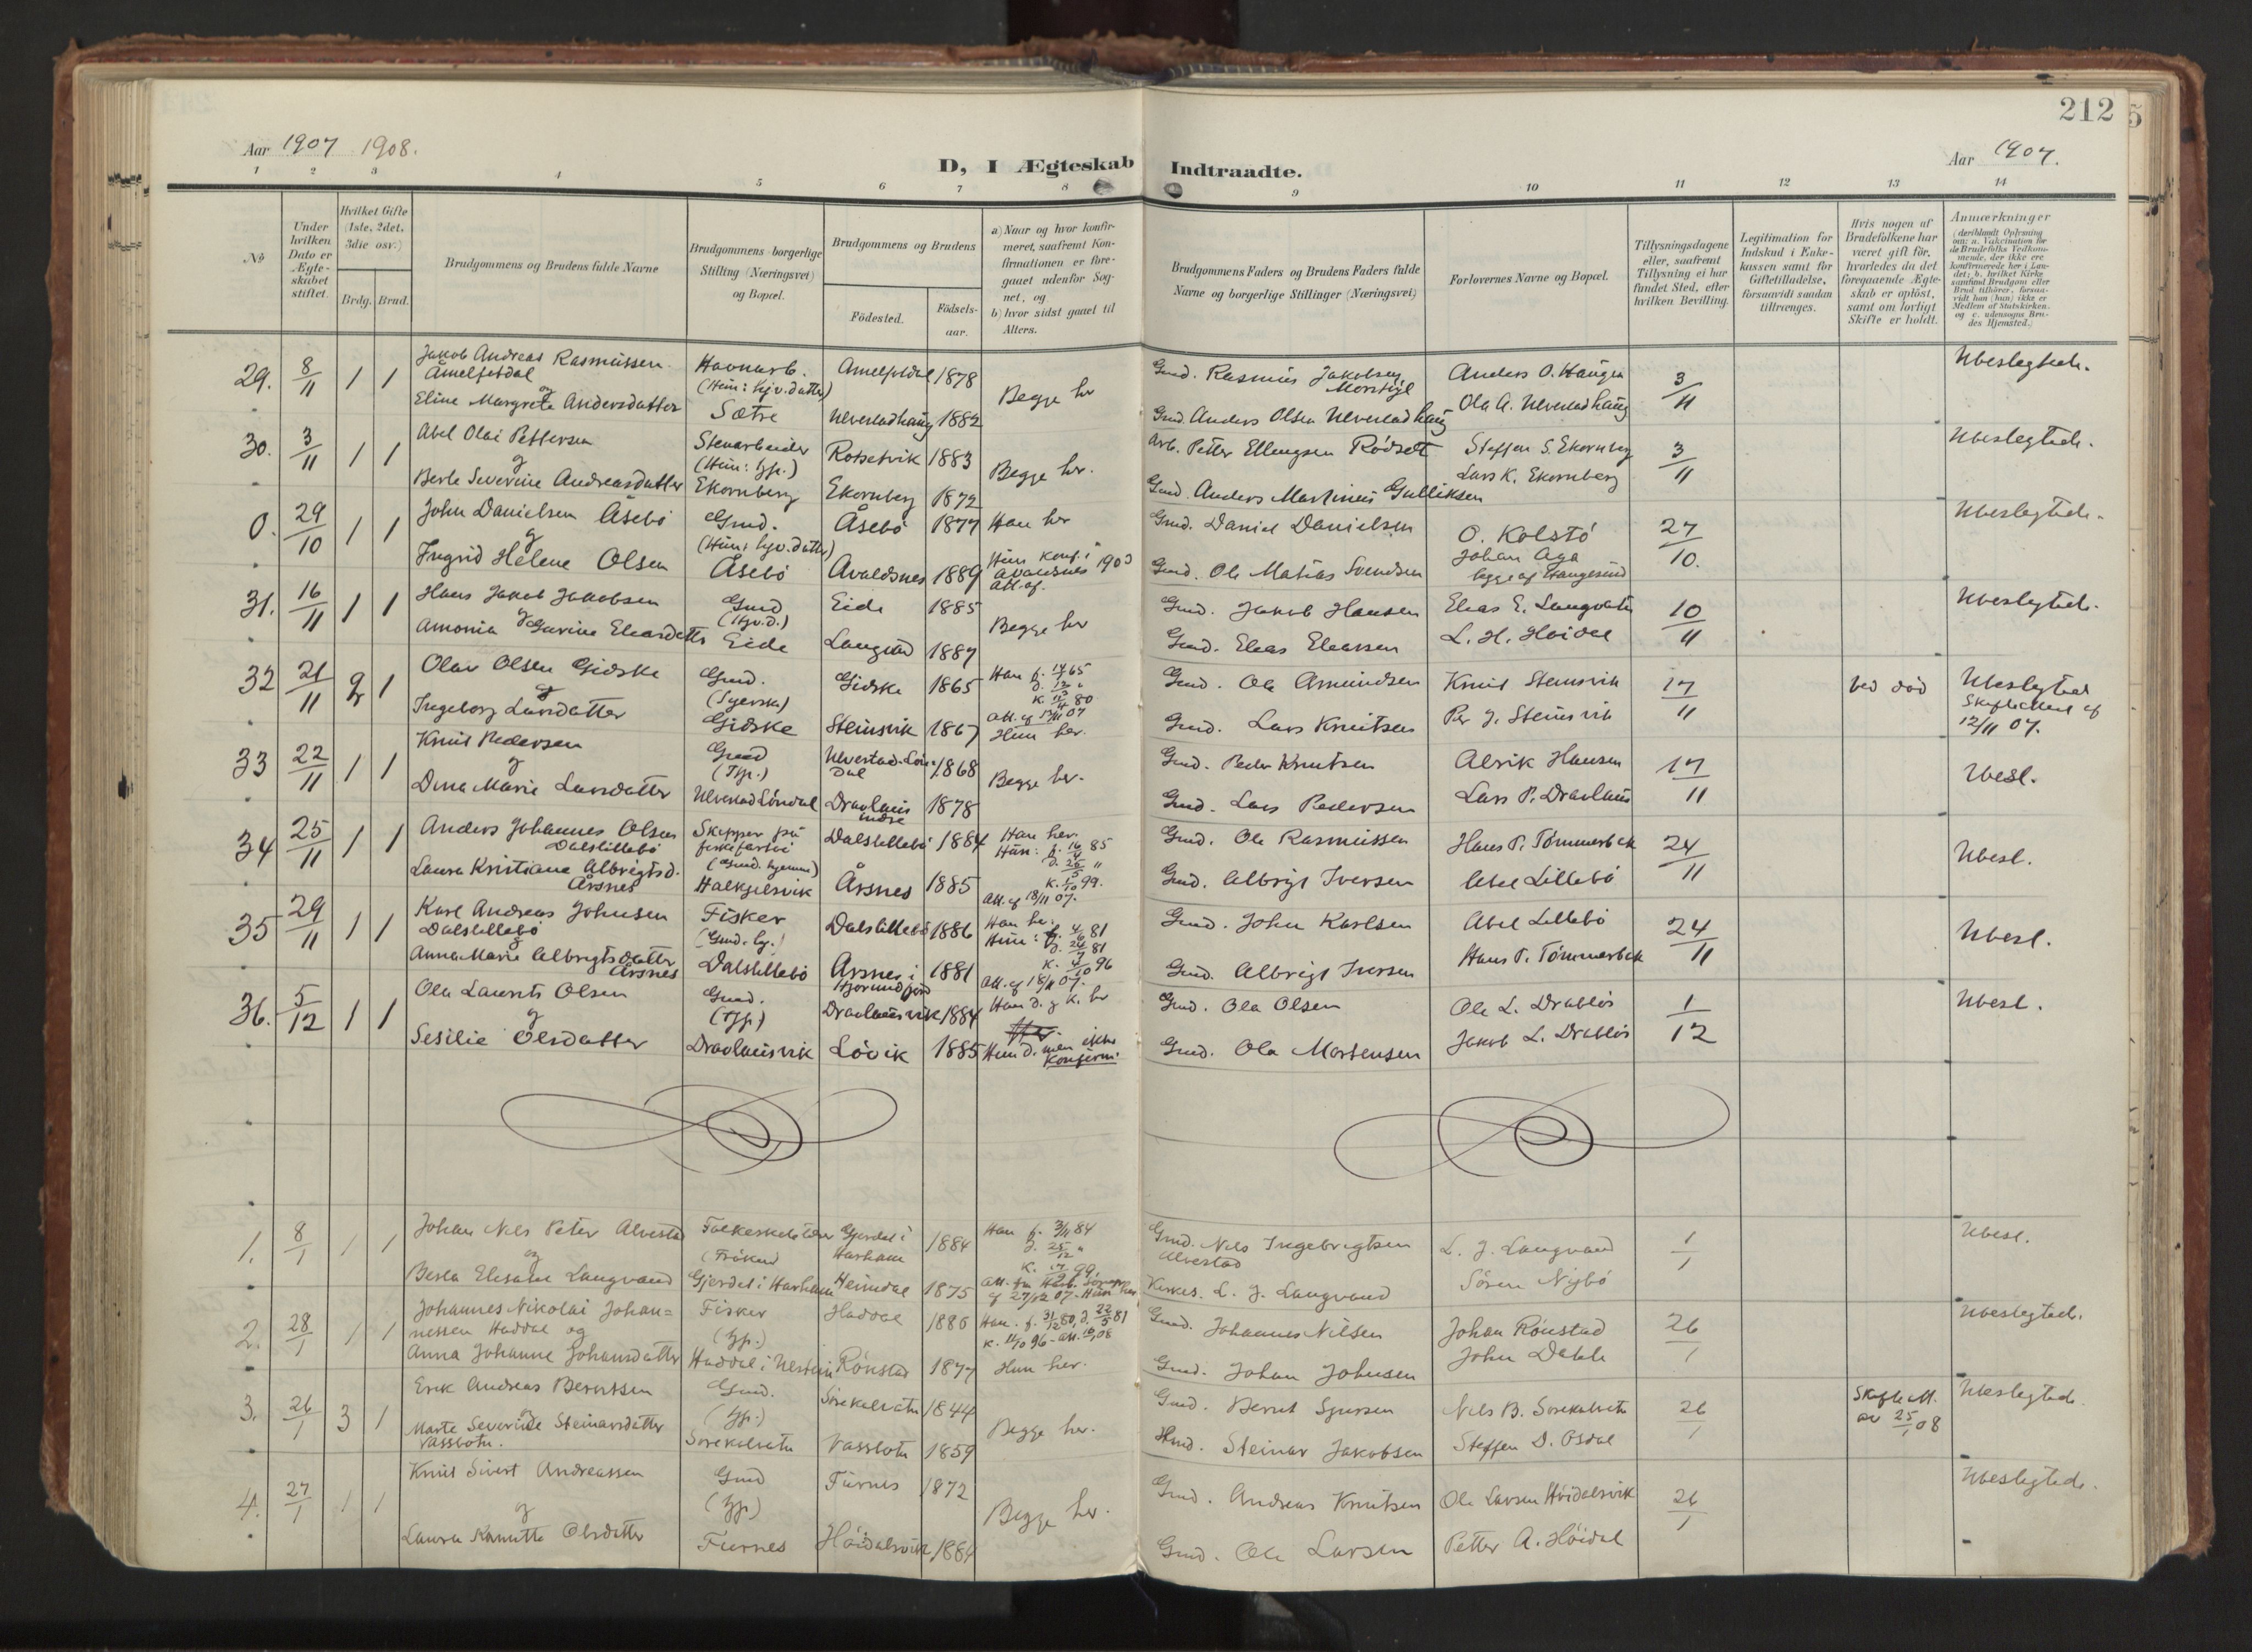 212
5
Aar 1907 1908.
D, I Ægteskab Indtraadte.
Aar 1907.
1 2 3 4 5 6 7 8 9 10 11 12 13 14
No
Under hvilken Dato er Ægte-skabet stiftet.
Hvilket Gifte (1ste, 2det, 3die osv.)
Brdg. Brud.
Brudgommens og Brudens fulde Navne
Brudgommens borgerlige Stilling (Næringsvei) og Bopæl.
Brudgommens og Brudens
Fødested.
Fødsels-aar.
a) Naar og hvor konfir-meret, saafremt Kon-firmationen er fore-gaaet udenfor Sog-net, og
b) hvor sidst gaaet til Alters.
Brudgommens Faders og Brudens Faders fulde Navne og borgerlige Stillinger (Næringsvei)
Forlovernes Navne og Bopæl.
Tillysningsdagene eller, saafremt Tillysning ei har fundet Sted, efter hvilken Bevilling.
Legitimation for Indskud i Enke-kassen samt for Giftetilladelse, forsaavidt saadan tiltrænges.
Hvis nogen af Brudefolkene har været gift før, hvorledes da det foregaaende Ægte-skab er opløst, samt om lovligt Skifte er holdt.
Anmærkninger (deriblandt Oplysning om: a. Vakcination for de Brudefolks Vedkom-mende, der ikke ere konfirmerede her i Lan-det; b. hvilket Kirke-samfund Brudgom eller Brud tilhører, forsaa-vidt han (hun) ikke er Medlem af Statskirken. og c. udensogns Bru-des Hjemsted.)
29. 8/11 1 1 Jakob Andreas Rasmussen Havnarb. Amelfotdal 1878 Begge her Gmd. Rasmus Jakobsen Anders O. Haugen 3/11 Ubeslegtede.
Åmelfotdal og (Hun: hjv. datter)
Eline Margrete Andersdatter Sætre Ulvestadhaug 1882 Gmd. Anders Olsen Ulvestadhaug Ola A. Ulvestadhaug
30. 3/11 1 1 Abel Olai Pettersen Stenarbeider Rotsetvik 1883 Begge her. Arb. Petter Ellengsen Rødset Steffen S. Ekornberg 3/11 Ubeslegtede.
og (Hun: tjp.)
Berte Severine Andreasdatter Ekornberg Ekornberg 1872 Gmd. Anders Martinus Gulliksen Lars K. Ekornberg
0. 29/10 1 1 John Danielsen Åsebø Gmd. Åsebø 1877 Han her Gmd. Daniel Danielsen O. Kolstø 27/10. Ubeslegtede.
og (Hun: hjv. datter) Hun konf. i Avaldsnes 1903 Johan Aga
Ingrid Helene Olsen Åsebø Avaldsnes 1889 Att. af. Gmd. Ole Matias Svendsen begge af Haugesund
31. 16/11 1 1 Hans Jakob Jakobsen Gmd Eide 1885 Begge her Gmd. Jakob Hansen Elias E. 10/11 Ubeslegtede.
og (Hjv. d.)
Amonia Gurine Eliasdatter Eide 1887 Gmd. Elias Eliassen L. H. Høidal
32 21/11 2 1 Olav Olsen Gidske Gmd. Gidske 1865 Han f. 65 Gmd. Ole Amundsen Knut Steinsvik 17/11 ved død Ubeslegted
og (Syerske) k. 80 Skifteattest af
Ingeborg Larsdatter Gidske Steinsvik 1867 Hun her. Gmd. Lars Knutsen Per J. Steinsvik 12/11 07.
33 22/11 1 1 Knut Pedersen Gmd Ulvestad-Løndal 1868 Begge her. Gmd. Peder Knutsen Alrik Hansen 17/11 Ubesl.
og (Tjp.)
Dina Marie Larsdatter Ulvestad Løndal Dravlaus indre 1878 Gmd. Lars Pedersen Lars P. Dravlaus
34 25/11 1 1 Anders Johannes Olsen Skipper på Dalslillebø 1884 Han her. Gmd. Ole Rasmussen Hans P. Tømmerbak 24/11 Ubesl.
Dalslillebø fiskefartøi Hun: f. 16/4 85
Laura Kristiane Albrigtsd. (Gmd. hjemme) k. 1/10 99.
Årsnes Halkjelsvik Årsnes 1885 Att. af 18/11 07. Gmd. Albrigt Iversen Abel Lillebø
35 29/11 1 1 Karl Andreas Johnsen Fisker Dalslillebø 1886 Han her. Gmd. John Karlsen Abel Lillebø 24/11 Ubesl.
Dalslillebø og (Gmd. hj.) Hun: f. 4/6 81
Anna Marie Albrigtsdatter Dalslillebø Årsnes i 1881 k. 4/10 96 Hans P. Tømmerbak
Årsnes Hjørundfjord Att. af 18/11 07. Gmd. Albrigt Iversen
36. 5/12 1 1 Ole Laurits Olsen Gmd. Dravlausvik 1884 Han d. og k. her Gmd. Ola Olsen Ole L. Drabløs 1/12 Ubesl.
og (Tjp.)
Sesilie Olsdatter Dravlausvik Løvik 1885 Hun d. men ikke konfirm. Gmd. Ola Mortensen Jakob L. Drabløs
1. 8/1 1 1 Johan Nils Peter Alvestad Folkeskolelærer Gjerdet i 1884 Han f. 3/11 84 Gmd. Nils Ingebrigtsen L. J. Langvand 1/1 Ubesl.
og (Frøken) Harham d. 25/12 " Alvestad
Berta Elisane Langvand Gjerdet i Harham Heimdal 1875 af 27/12 07. Hun her Kirkes. L. J. Langvand Søren Nybø
2. 28/1 1 1 Johannes Nikolai Johan= Fisker Haddal 1880 Han. f. 31/12 80, d. 22/5 81 Gmd. Johannes Nilsen Johan Rønstad 26/1 Ubeslegtede.
nessen Haddal og (tjp.) k. 11/10 96 - att.
Anna Johanne Johansdatter Haddal i Ulstein Rønstad 1877 Hun her. Gmd. Johan Johnsen John Dahle
3. 26/1 3 1 Erik Andreas Berntsen Gmd. 1844 Begge her. Gmd. Bernt Sjursen Nils B. 26/1 Skifteatt. Ubeslegted.
og (tjp.) av 25/1 08
Marte Severine Steinarsdatter Vassbotn 1859 Hmd. Steinar Jakobsen Steffen D. Osdal
Vassbotn.
4. 27/1 1 1 Knut Sivert Andreassen Gmd Furnes 1872 Begge her. Gmd. Andreas Knutsen Ole Larsen Høidalsvik 26/1 Ubeslegtede.
og (tjp)
Laura Kanutte Olsdatter Furnes Høidalsvik 1884 Gmd. Ole Larsen Petter A. Høidal